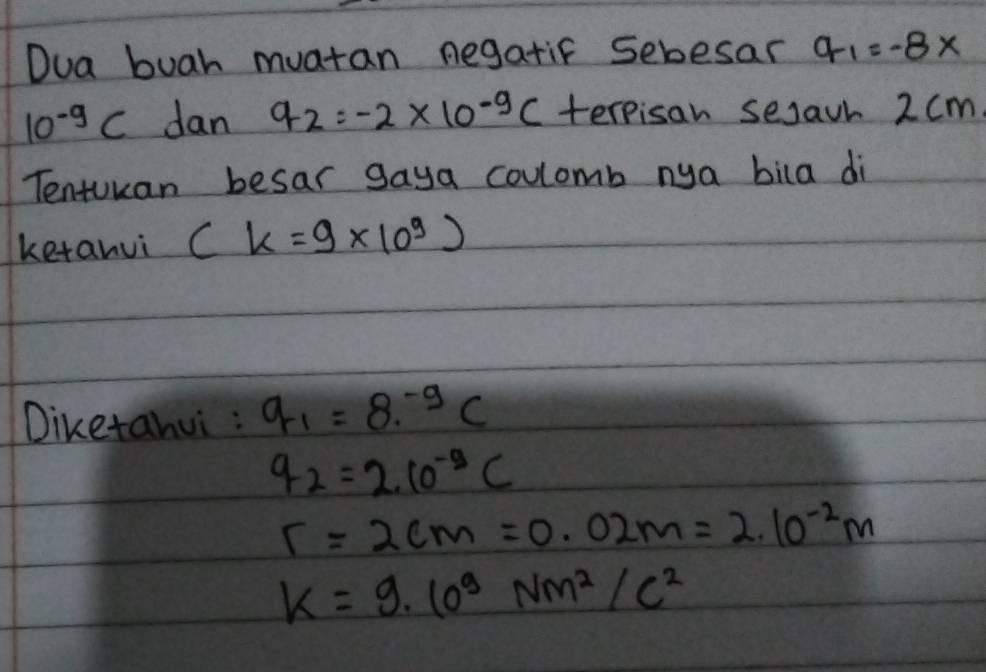 Dua buah muatan negatif sebesar q₁ = -8 ×
10⁻⁹ C dan q2 = -2 × 10⁻⁹ C terpisah sejauh 2 cm.
Tentukan besar gaya coulomb nya bila di
ketahui ( k = 9 × 10⁹ )
Diketahui : q₁ = 8.⁻⁹ C
q2 = 2.10⁻⁹ C
r = 2 cm = 0.02 m = 2.10⁻² m
k = 9.10⁹ Nm² / C²